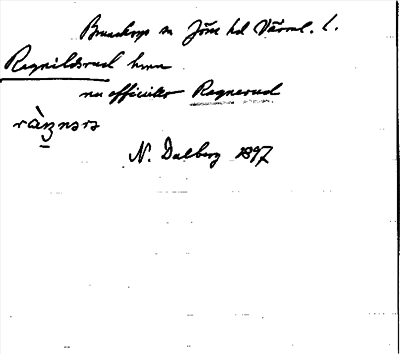 Brunskogs sn Jösse hd Värml. l.
Ragnildsrud hmn
nu officiellt Ragnerud
ràŋnərs
N. Dalberg 1897